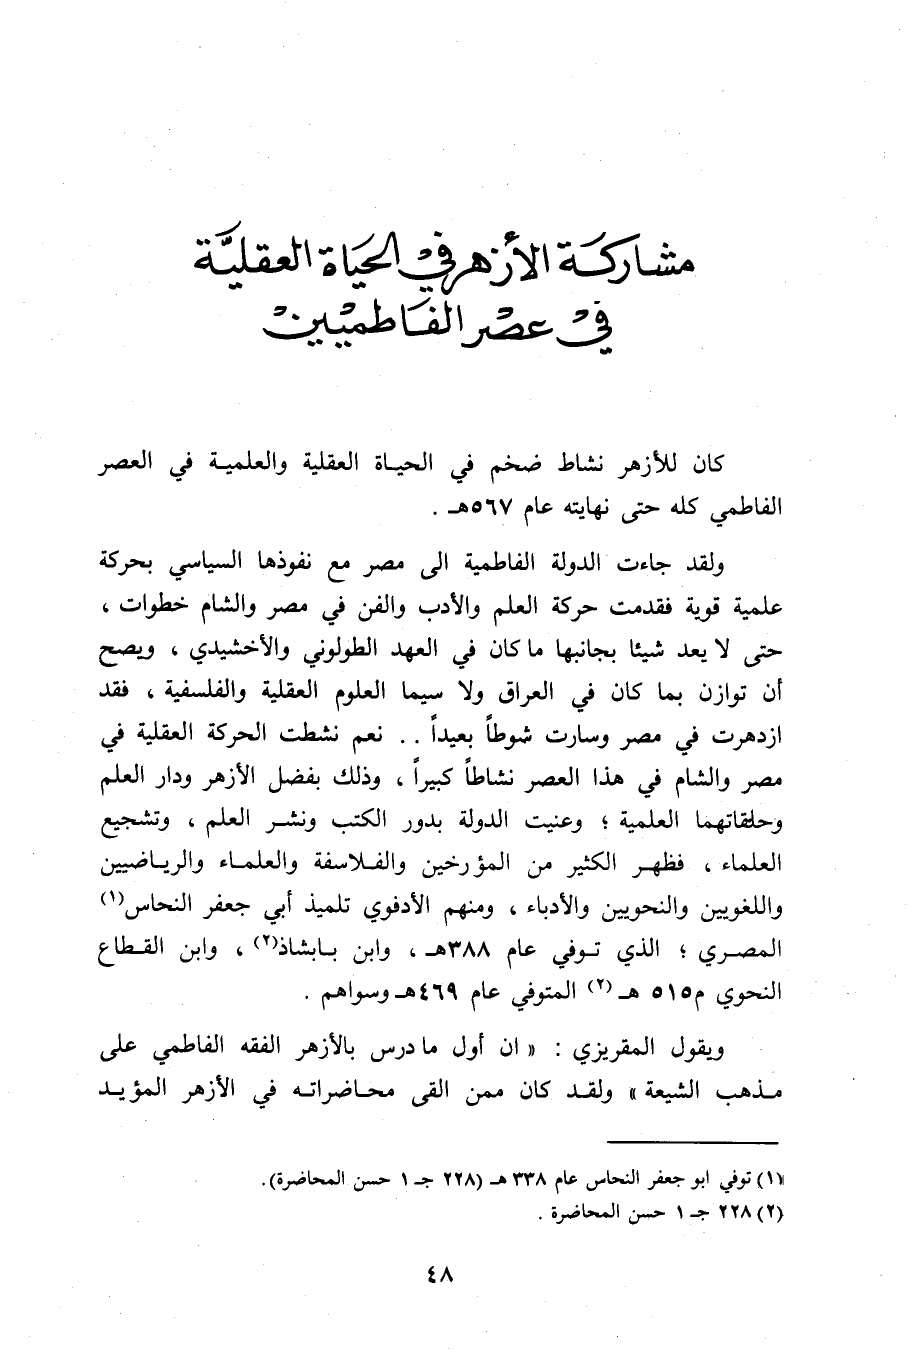 مشاركة الأزهر في الحياة العقلية
في عصر الفاطميين
كان للأزهر نشاط ضخم في الحياة العقلية والعلمية في العصر
الفاطمي كله حتى نهايته عام ٥٦٧هـ .
ولقد جاءت الدولة الفاطمية الى مصر مع نفوذها السياسي بحركة
علمية قوية فقدمت حركة العلم والأدب والفن في مصر والشام خطوات ،
حتى لا يعد شيئا بجانبها ما كان في العهد الطولوني والأخشيدي ، ويصح
أن توازن بما كان في العراق ولا سيما العلوم العقلية والفلسفية ، فقد
ازدهرت في مصر وسارت شوطاً بعيداً . . نعم نشطت الحركة العقلية في
مصر والشام في هذا العصر نشاطاً كبيراً ، وذلك بفضل الأزهر ودار العلم
وحلقاتهما العلمية ؛ وعنيت الدولة بدور الكتب ونشر العلم ، وتشجيع
العلماء ، فظهر الكثير من المؤرخين والفلاسفة والعلماء والرياضيين
واللغويين والنحويين والأدباء ، ومنهم الأدفوي تلميذ أبي جعفر النحاس(١)
المصري ؛ الذي توفي عام ٣٨٨هـ ، وابن بابشاذ(٢) ، وابن القطاع
النحوي م٥١٥ هـ(٢) المتوفي عام ٤٦٩هـ وسواهم .
ويقول المقريزي : « ان أول ما درس بالأزهر الفقه الفاطمي على
مذهب الشيعة » ولقد كان ممن القى محاضراته في الأزهر المؤيد
(١) توفي ابو جعفر النحاس عام ٣٣٨ هـ (٢٢٨ جـ ١ حسن المحاضرة).
(٢) ٢٢٨ جـ ١ حسن المحاضرة .
٤٨